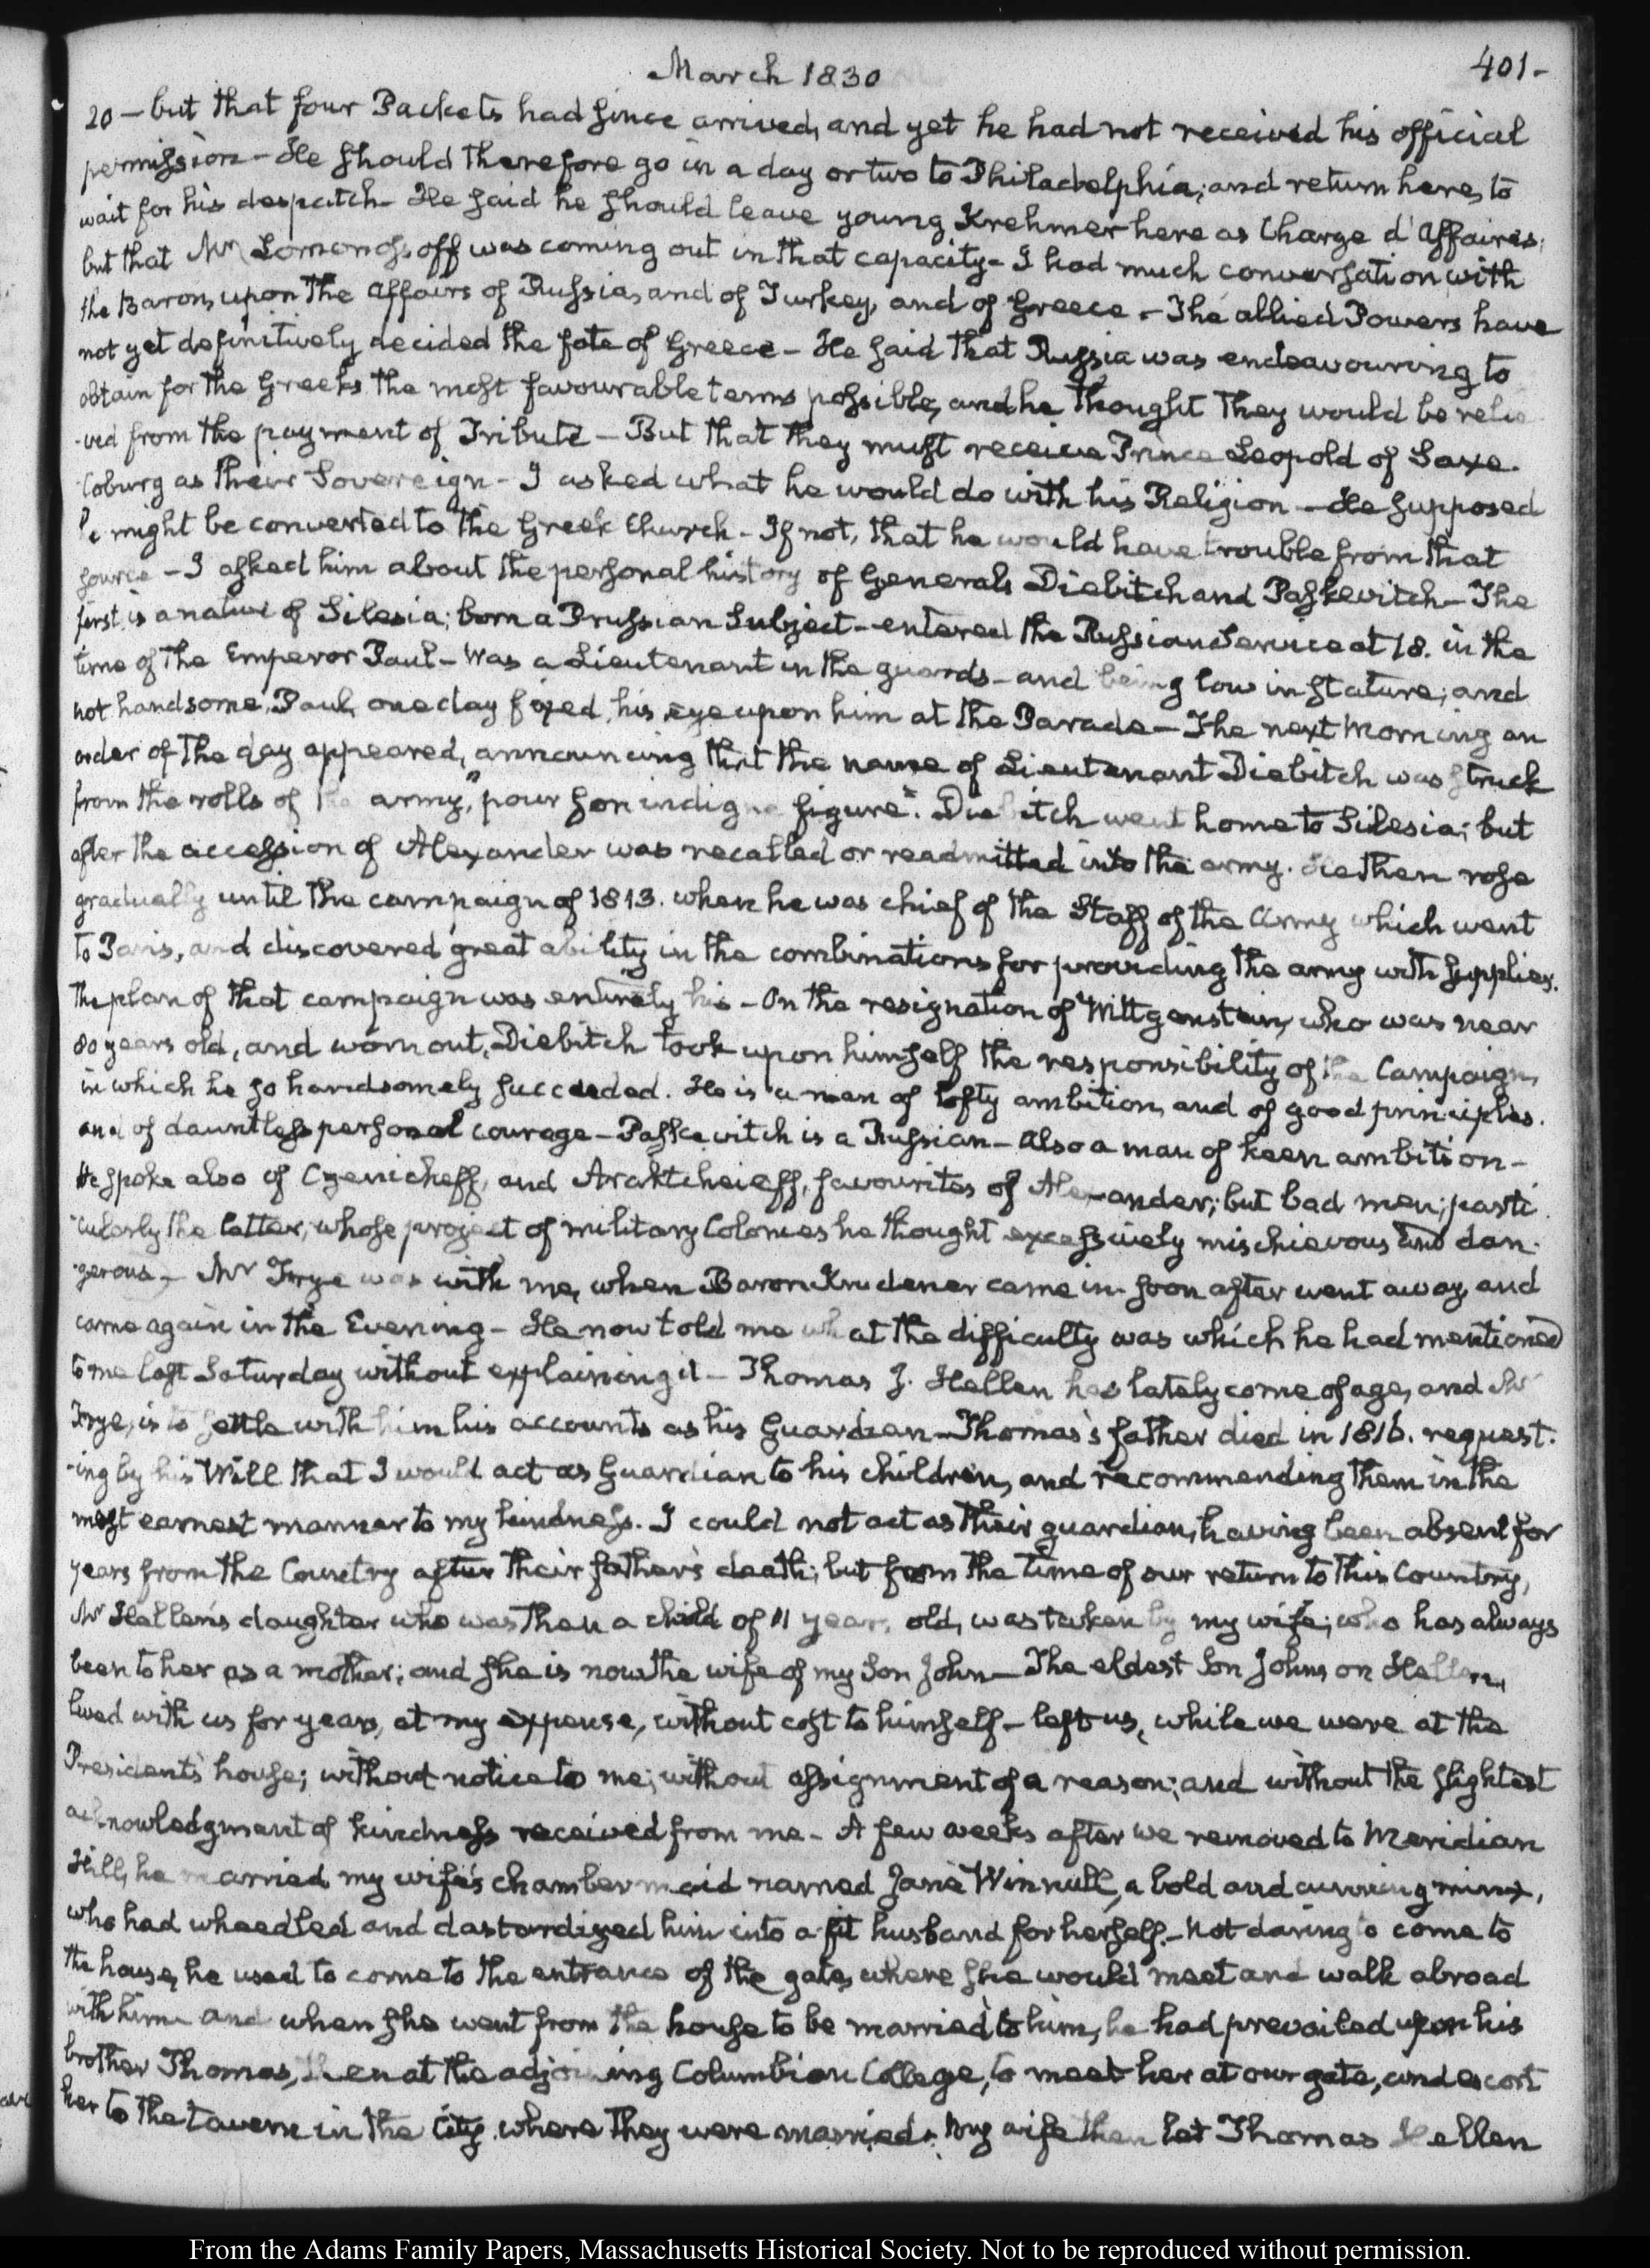 March 1830
401-
20 — but that four Packets had since arrived, and yet he had not received his official
permission — He should therefore go in a day or two to Philadelphia; and return here, to
wait for his despatch — He said he should leave young Krehmer here as Charge d'Affaires;
but that Mr Lomonossoff was coming out in that capacity — I had much conversation with
the Baron, upon the affairs of Russia, and of Turkey, and of Greece. — The allied Powers have
not yet definitively decided the fate of Greece — He said that Russia was endeavouring to
obtain for the Greeks the most favourable terms possible, and he thought they would be relie
-ved from the payment of Tribute — But that they must receive Prince Leopold of Saxe-
Coburg as their Sovereign — I asked what he would do with his Religion — He supposed
he might be converted to the Greek Church — If not, that he would have trouble from that
source — I asked him about the personal history of Generals Diebitch and Paskevitch — The
first is a native of Silesia; born a Prussian Subject — entered the Russian Service at 18. in the
time of the Emperor Paul — Was a Lieutenant in the guards — and being low in stature; and
not handsome, Paul, one day fixed his eye upon him at the Parade — The next morning an
order of the day appeared, announcing that the name of Lieutenant Diebitch was struck
from the rolls of the army, "pour son indigne figure". Diebitch went home to Silesia; but
after the accession of Alexander was recalled or readmitted into the army. He then rose
gradually until the campaign of 1813. when he was chief of the Staff of the Army which went
to Paris, and discovered great ability in the combinations for providing the army with supplies.
The plan of that campaign was entirely his — On the resignation of Wittgenstein, who was near
80 years old, and worn out, Diebitch took upon himself the responsibility of the Campaign,
in which he so handsomely succeeded. He is a man of lofty ambition, and of good principles.
and of dauntless personal courage — Paskevitch is a Russian — also a man of keen ambition —
He spoke also of Czenicheff, and Araktcheieff, favourites of Alexander; but bad men; parti
-cularly the latter, whose project of military Colonies he thought excessively mischievous and dan-
-gerous — Mr Frye was with me, when Baron Krudener came in. soon after went away, and
came again in the Evening — He now told me what the difficulty was which he had mentioned
to me last Saturday without explaining it — Thomas J. Hellen has lately come of age, and Mr
Frye, is to settle with him his accounts as his Guardian — Thomas's father died in 1816. request-
-ing by his Will that I would act as Guardian to his children, and recommending them in the
most earnest manner to my kindness. I could not act as their guardian, having been absent for
years from the Country after their father's death; but from the time of our return to this Country,
Mr Hellen's daughter who was then a child of 11 years old, was taken by my wife; who has always
been to her as a mother; and she is now the wife of my Son John — The eldest Son Johnson Hellen,
lived with us for years, at my expense, without cost to himself — left us, while we were at the
President's house; without notice to me; without assignment of a reason; and without the slightest
acknowledgment of kindness received from me — A few weeks after we removed to Meridian
Hill, he married my wife's chambermaid named Jane Winnull, a bold and cunning minx,
who had wheedled and dastardized him into a fit husband for herself. — Not daring to come to
the house, he used to come to the entrance of the gate, where she would meet and walk abroad
with him and when she went from the house to be married to him, he had prevailed upon his
brother Thomas, then at the adjoining Columbian College, to meet her at our gate, and escort
her to the tavern in the City where they were married. My wife then let Thomas Hellen
From the Adams Family Papers, Massachusetts Historical Society. Not to be reproduced without permission.